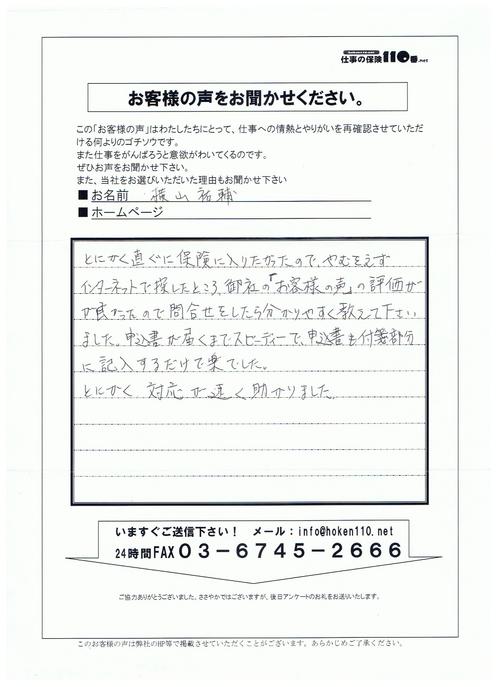 仕事の保険110番.net
お客様の声をお聞かせください。
この「お客様の声」はわたしたちにとって、仕事への情熱とやりがいを再確認させていただ
ける何よりのゴチソウです。
また仕事をがんばろうと意欲がわいてくるのです。
ぜひお声をお聞かせ下さい。
また、当社をお選びいただいた理由もお聞かせ下さい
■お名前 横山祐輔
■ホームページ
とにかく直ぐに保険に入りたかったので、やむをえず
インターネットで探したところ、御社の「お客様の声」の評価が
が良かったので問合せをしたら分かりやすく教えて下さい
ました。申込書が届くまでスピーディーで、申込書も付箋部分
に記入するだけで楽でした。
とにかく 対応が速く助かりました
いますぐご送信下さい! メール:info@hoken110.net
24時間FAX03-6745-2666
ご協力ありがとうございました。ささやかではございますが、後日アンケートのお礼をお送りいたします。
このお客様の声は弊社のHP等で掲載させていただくことがございます。あらかじめご了承ください。